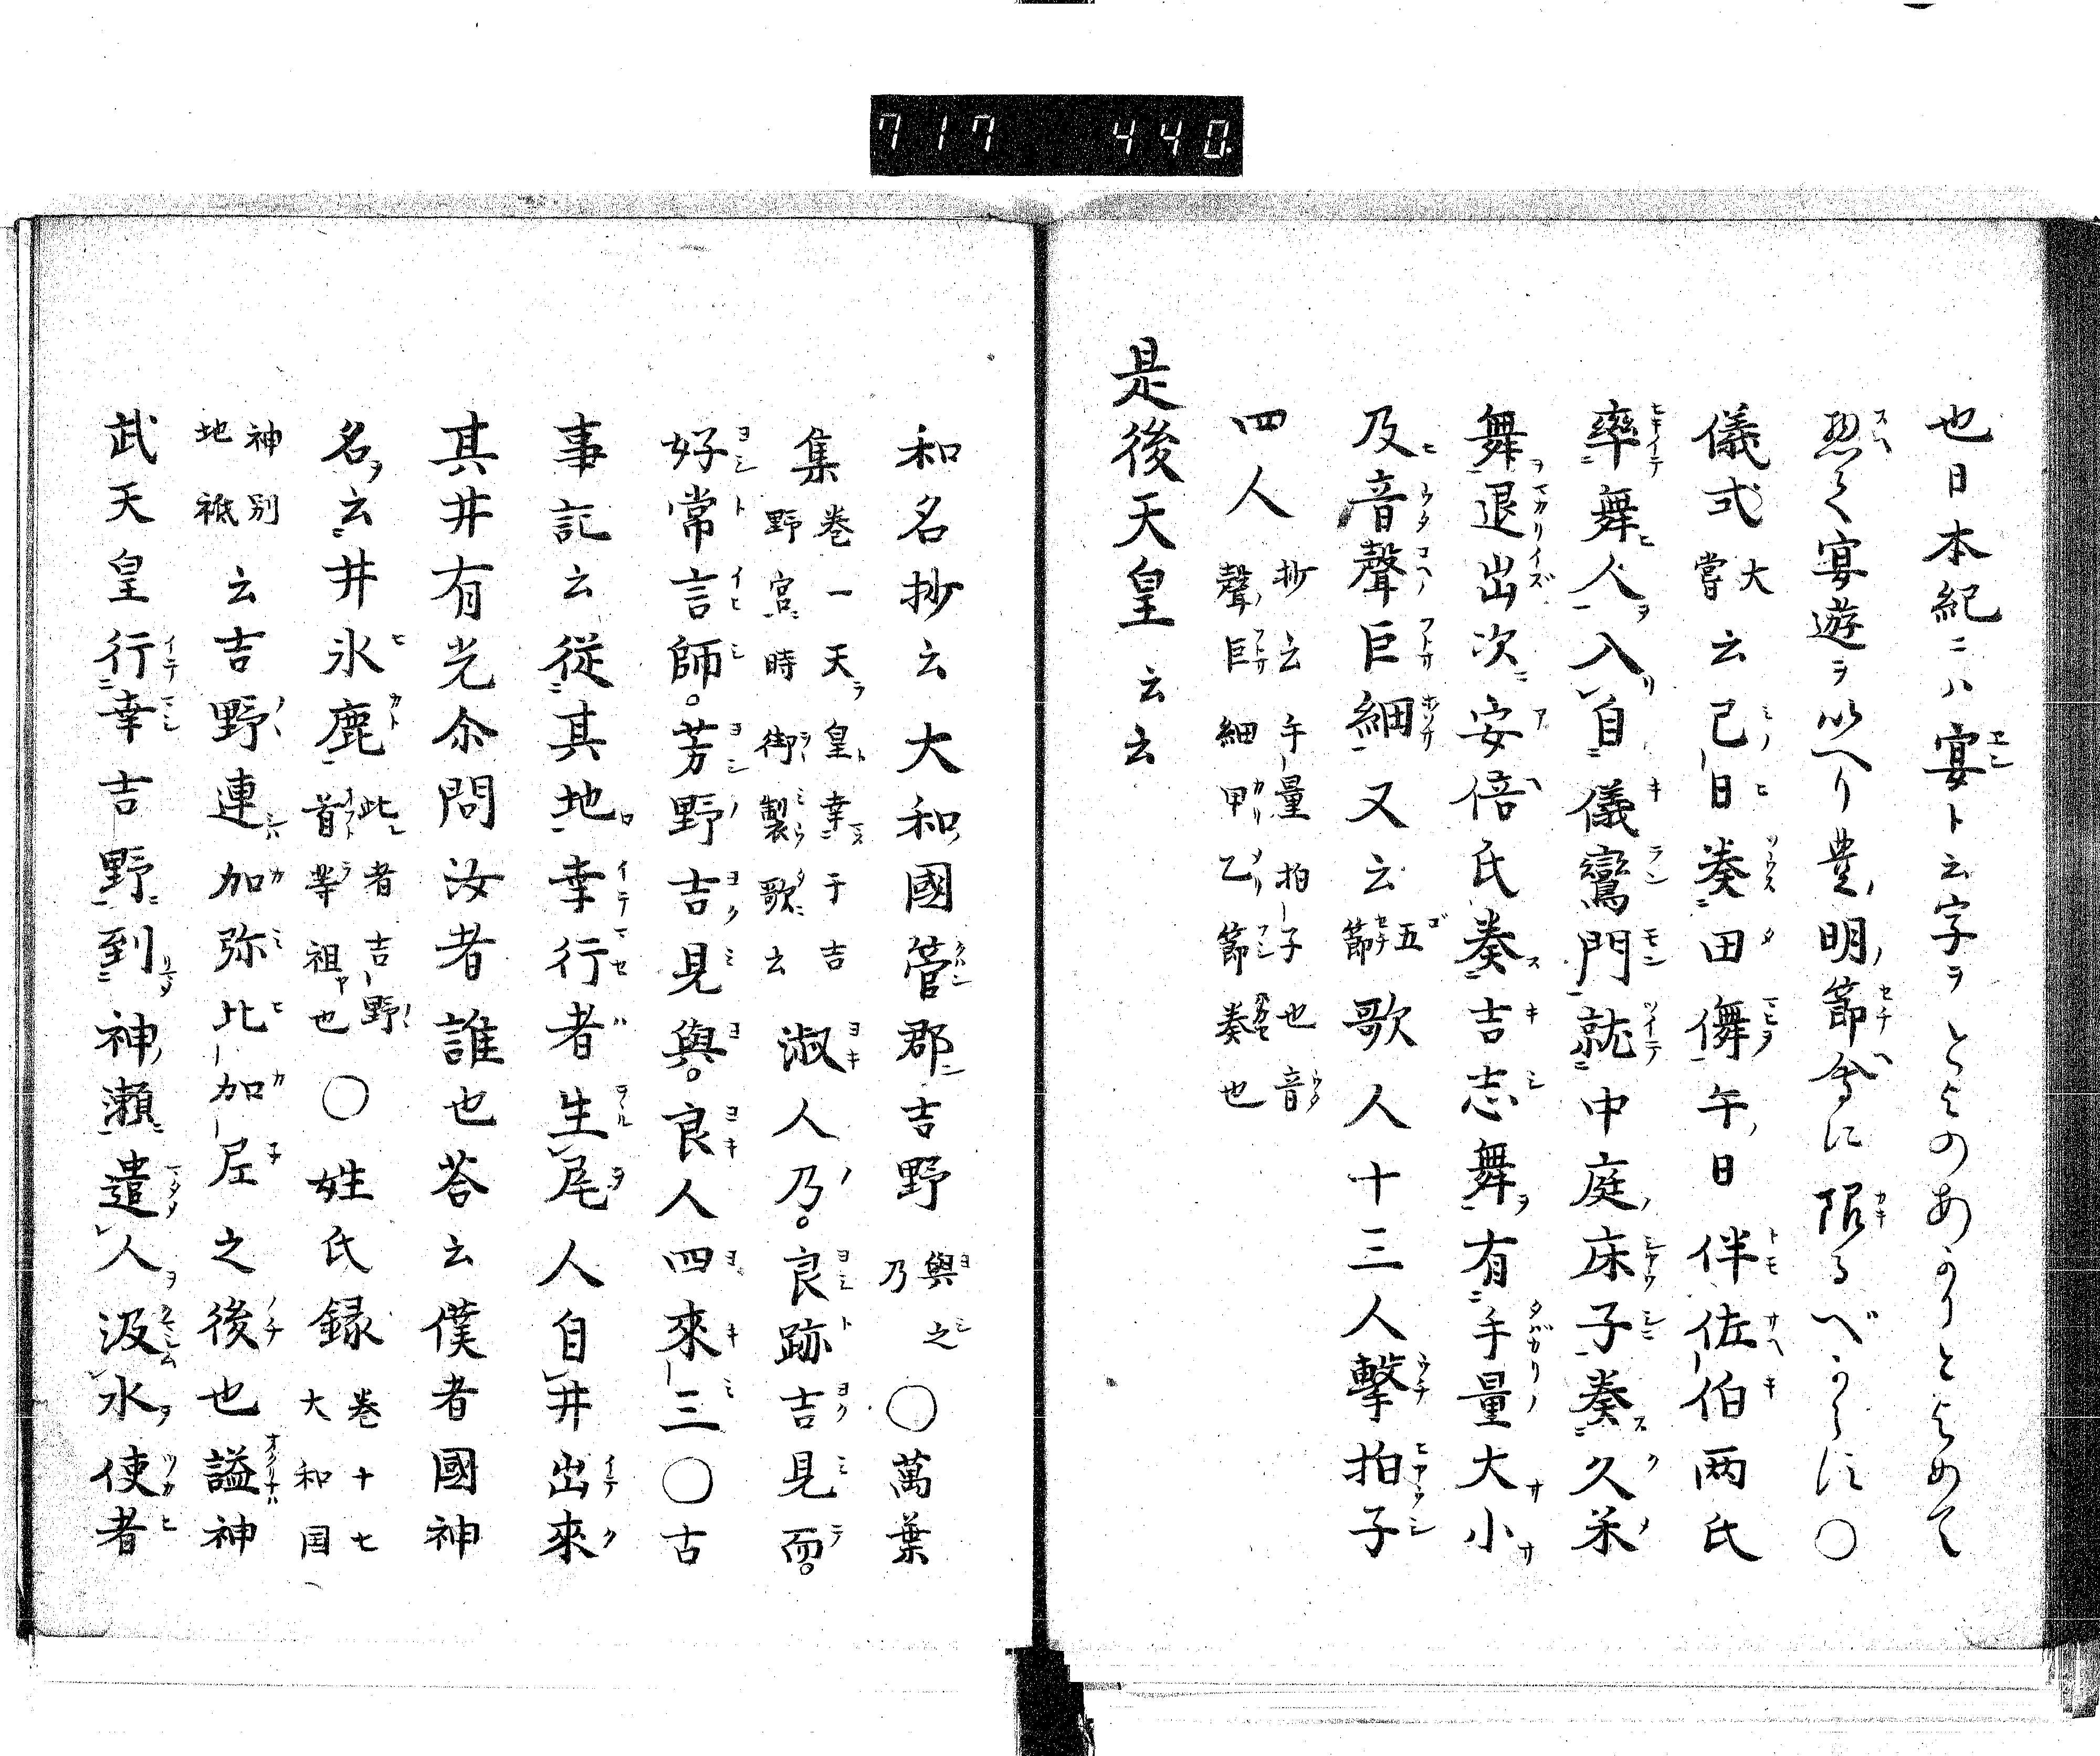 717 440.
也日本紀ニハ宴ト云字ヲとよのあかりとよめて
惣て宴遊ヲ以へり豊明節會に限るべからに〇
儀式大嘗云己日奏田儛午日伴佐伯两氏
率舞人入自儀鸞門就中庭床子奏久米
舞退出次安倍氏奏吉志舞有手量大小
及音聲巨細又云五節歌人十三人擊拍子
四人抄云手量拍子也音聲巨細甲乙節奏也
是後天皇云云
和名抄云大和國管郡吉野與之乃〇萬葉
集巻一天皇幸于吉野宮時御製歌云淑人乃良跡吉見而
好常言師芳野吉見與良人四來三〇古
事記云從其地幸行者生尾人自井出來
其井有光尒問汝者誰也荅云僕者國神
名云井氷鹿此者吉野首等祖也〇姓氏録巻十七大和国
神別地祇云吉野連加弥比加尼之後也謚神
武天皇行幸吉野到神瀬遣人汲水使者